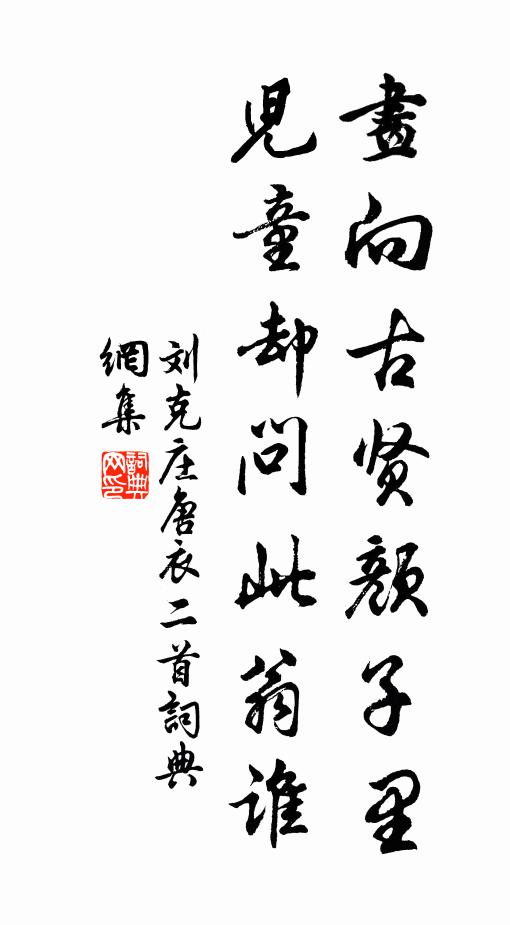 畫向古贤颜子里
兒童却问此翁谁
刘克庄唐衣二首詞典
網集
詞典
网印